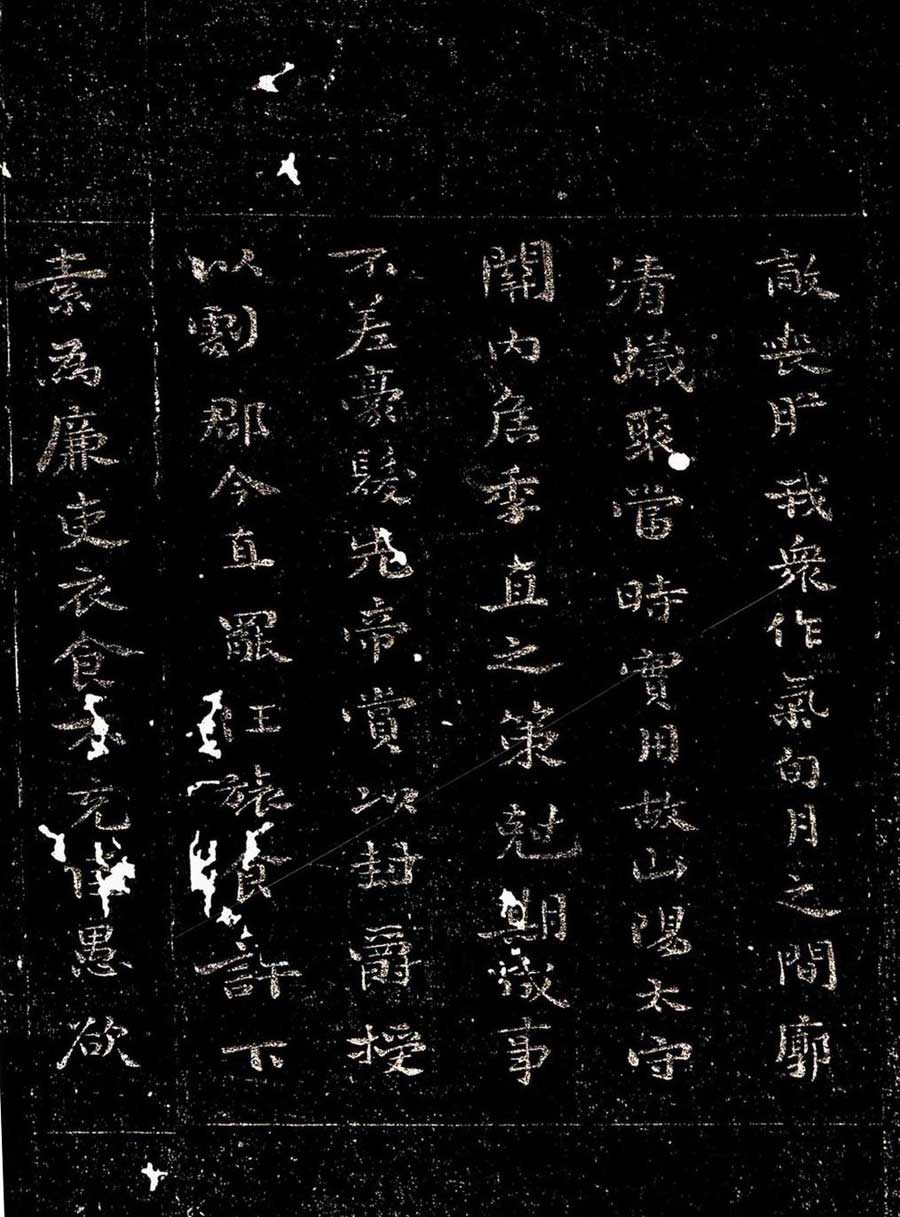 敵喪胆我衆作氣旬月之間廓
清蟻聚當時實用故山陽太守
關内侯季直之策尅期成事
不差豪髮先帝賞以封爵授
以劇郡今直罷任旅食許下
素為廉吏衣食不充臣愚欲